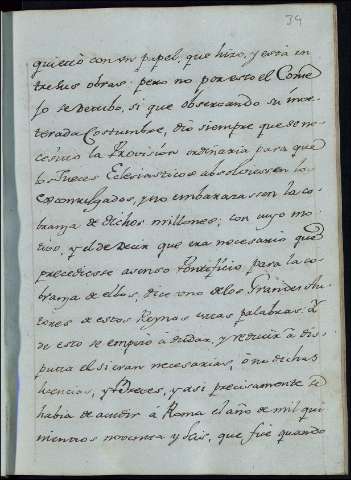 39
quietò con un papel, que hizo, y está en
tre sus obras: pero no por esto el Conse
jo se detubo, si que observando su inve
terada Costumbre, dio siempre que se ne
cesitó la Provision ordinaria para que
los Jueces Eclesiasticos absolviessen los
excomulgados, y no embarazassen la co
branza de dichos millones; con cuyo mo
tivo, y el de decir que era necesario que
precediesse asenso Pontificio para la co
branza de ellos, dice uno de los Grandes Au
tores de estos Reynos estas palabras. Y
de esto se empezó à dudar, y reducir à dis
puta el si eran necesarias, ò no dichas
licencias, y Breves, y asi precisamente se
habia de acudir à Roma el año de mil qui
nientos noventa y seis, que fue quando